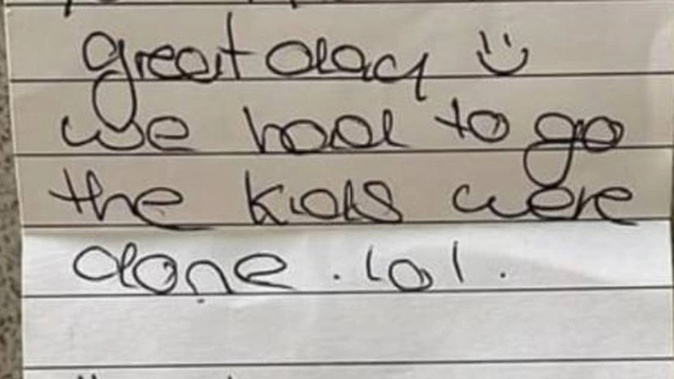 great day :)
we had to go
the kids were
done . lol .